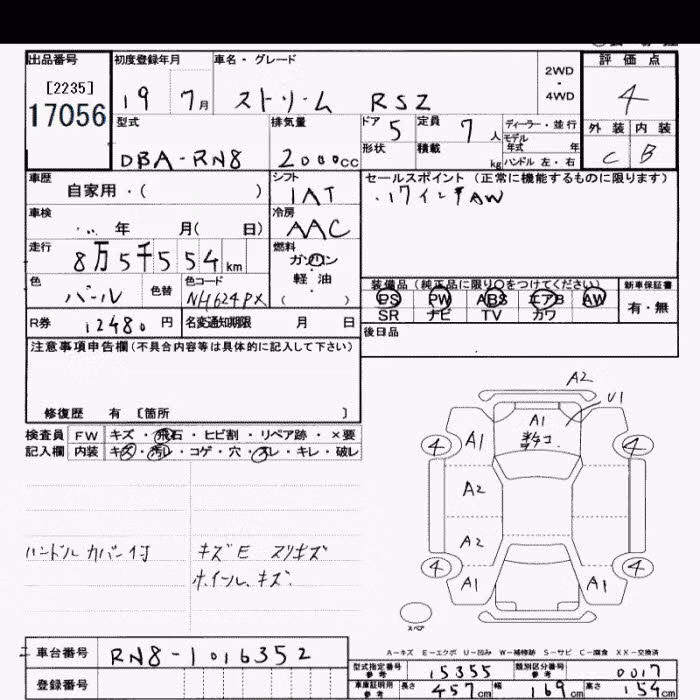 出品番号 初度登録年月 車名・グレード 2WD・4WD 評価点
[2235]
17056 19 7月 ストリーム RSZ 4
型式 排気量 ドア 5 定員 7人 ディーラー・並行 外装 内装
モデル年式 年
DBA-RN8 2000cc 形状 積載 kg ハンドル 左・右 C B
車歴 自家用・( ) シフト 1AT セールスポイント(正常に機能するものに限ります)
車検 年 月( 日) 冷房 AAC 17インチAW
走行 8万5千554km 燃料 ガソリン
軽油
( )
色 パール 色替 色コード NH624PX 装備品(純正品に限り○をつけてください) 新車保証書
PS PW ABS エアB AW 有・無
SR ナビ TV カワ
R券 12480円 名変通知期限 月 日 後日品
注意事項申告欄(不具合内容等は具体的に記入して下さい)
修復歴 有 [箇所 ]
検査員 FW キズ・飛石・ヒビ割・リペア跡・×要
記入欄 内装 キズ・汚レ・コゲ・穴・スレ・キレ・破レ
ハンドルカバー付 キズE スリキズ
ホイールキズ
A2
U1
A1
4 A1 4
A2
A2
4 A1 A1 4
スペア
A-キズ E-エクボ U-凹み W-補修跡 S-サビ C-腐食 XX-交換済
車台番号 RN8-1016352
型式指定番号 参考 15355 類別区分番号 参考 0017
登録番号
車庫証明用 参考 長さ 457cm 幅 169cm 高さ 154cm